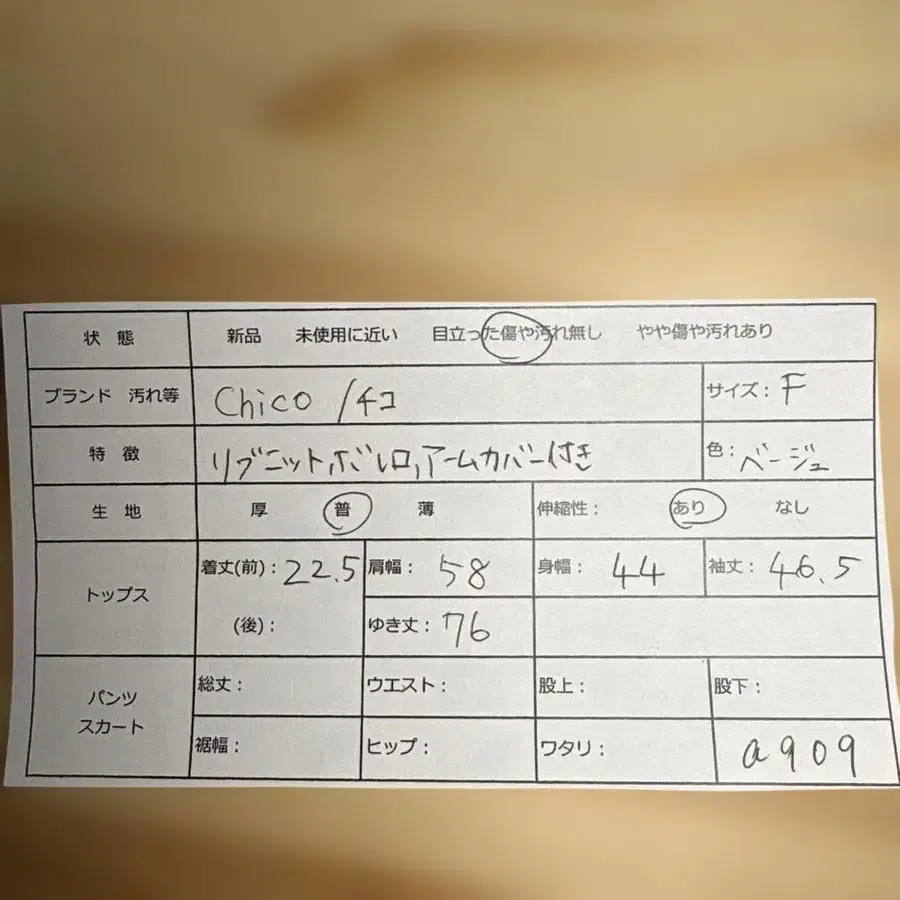 状 態 新品 未使用に近い 目立った傷や汚れ無し やや傷や汚れあり
ブランド 汚れ等 Chico /チコ サイズ: F
特 徴 リブニット,ボレロ,アームカバー付き 色: ベージュ
生 地 厚 普 薄 伸縮性: あり なし
トップス 着丈(前): 22.5 肩幅: 58 身幅: 44 袖丈: 46.5
(後): ゆき丈: 76
パンツ スカート 総丈: ウエスト: 股上: 股下:
裾幅: ヒップ: ワタリ: a909